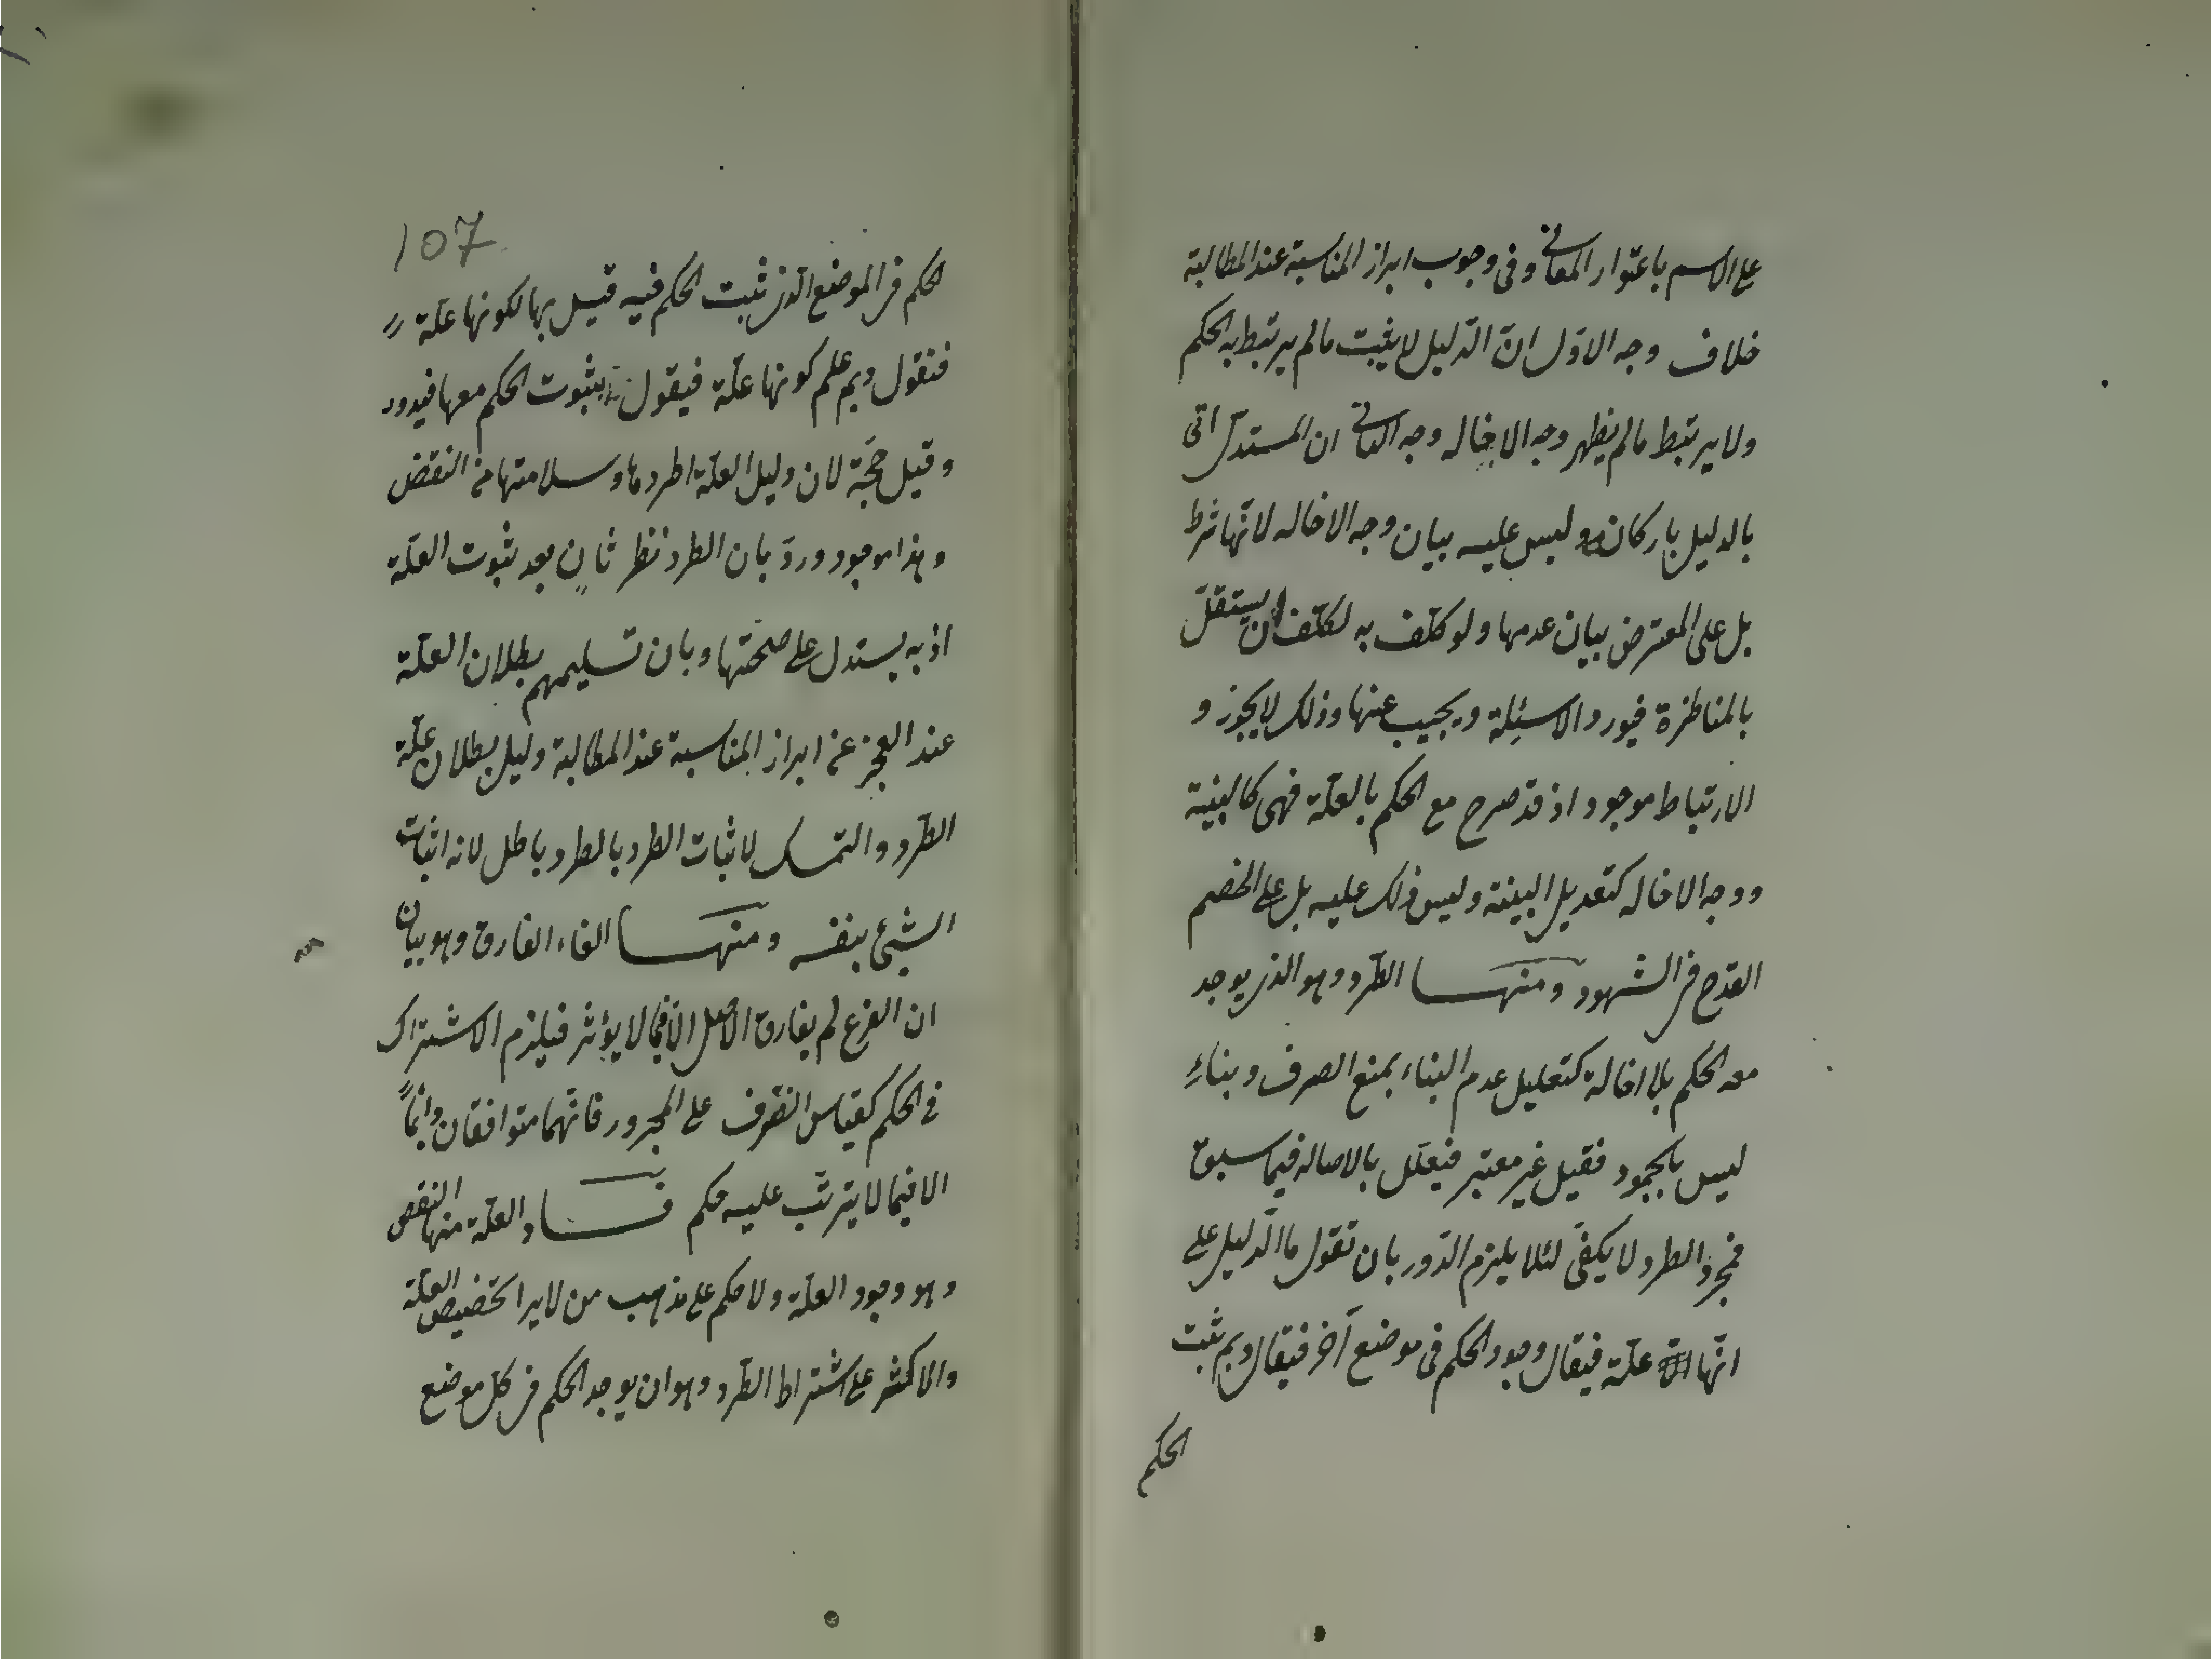 على الاسم باعتوار المعانى وفى وجوب ابراز المناسبة عند المطالبة
خلاف وجه الاوّل انّ الدّليل لا يثبت مالم يرتبط به الحكم
ولا يرتبط مالم يظهر وجه الاخاله وجه الثانى ان المستدلّ اتى
بالدليل باركانه وليس عليه بيان وجه الاخاله لانّها شرط
بل على المعترض بيان عدمها ولو كلّف به لكلّف ان يستقلّ
بالمناظرة فيورد الاسئلة ويجيب عنها وذلك لا يجوز و
الارتباط موجود اذ قد صرح مع الحكم بالعلّة فهى كالبينة
ووجه الاخاله كتعديل البينة وليس ذلك عليه بل على الخصم
القدح فى الشهود ومنها الطّرد وهو الذى يوجد
معه الحكم بلا اخالة كتعليل عدم البناء بمنع الصرف وبناءِ
ليس بالجمود فقيل غير معتبر فيعلّل بالاصاله فيما سبق
فمجرّد الطرد لا يكفى لئلا يلزم الدّور بان تقول ما الدّليل على
انّها علّة فيقال وجود الحكم فى موضع آخر فيقال وبم يثبت
الحكم
107
الحكم فى الموضع الذى ثبت الحكم فيه قيل بها لكونها علّة
فنقول وبم علم كونها علّة فيقول بثبوت الحكم معها فيدور
وقيل حجّة لان دليل العلّة اطرادها وسلامتها من النقض
وهذا موجود وردّ بان الطرد نظر ثانٍ بعد ثبوت العلّة
اذ به يستدل على صحّتها وبان تسليمهم بطلان العلّة
عند العجز عن ابراز المناسبة عند المطالبة دليل بطلان علّة
الطّرد والتمسك لاثبات الطرد بالطرد باطل لانه اثبات
الشىء بنفسه ومنها الغاء الفارق وهو بيان
ان الفرع لم يفارق الاصل الّا فيما لا يؤثر فيلزم الاشتراك
فى الحكم كقياس الظرف على المجرور فانّهما متوافقان دائماً
الا فيما لا يترتّب عليه حكم فساد العلّة منها النقض
وهو وجود العلّة ولا حكم على مذهب من لا يرا تخصيص العلّة
والاكثر على اشتراط الطّرد وهو ان يوجد الحكم فى كلّ موضع